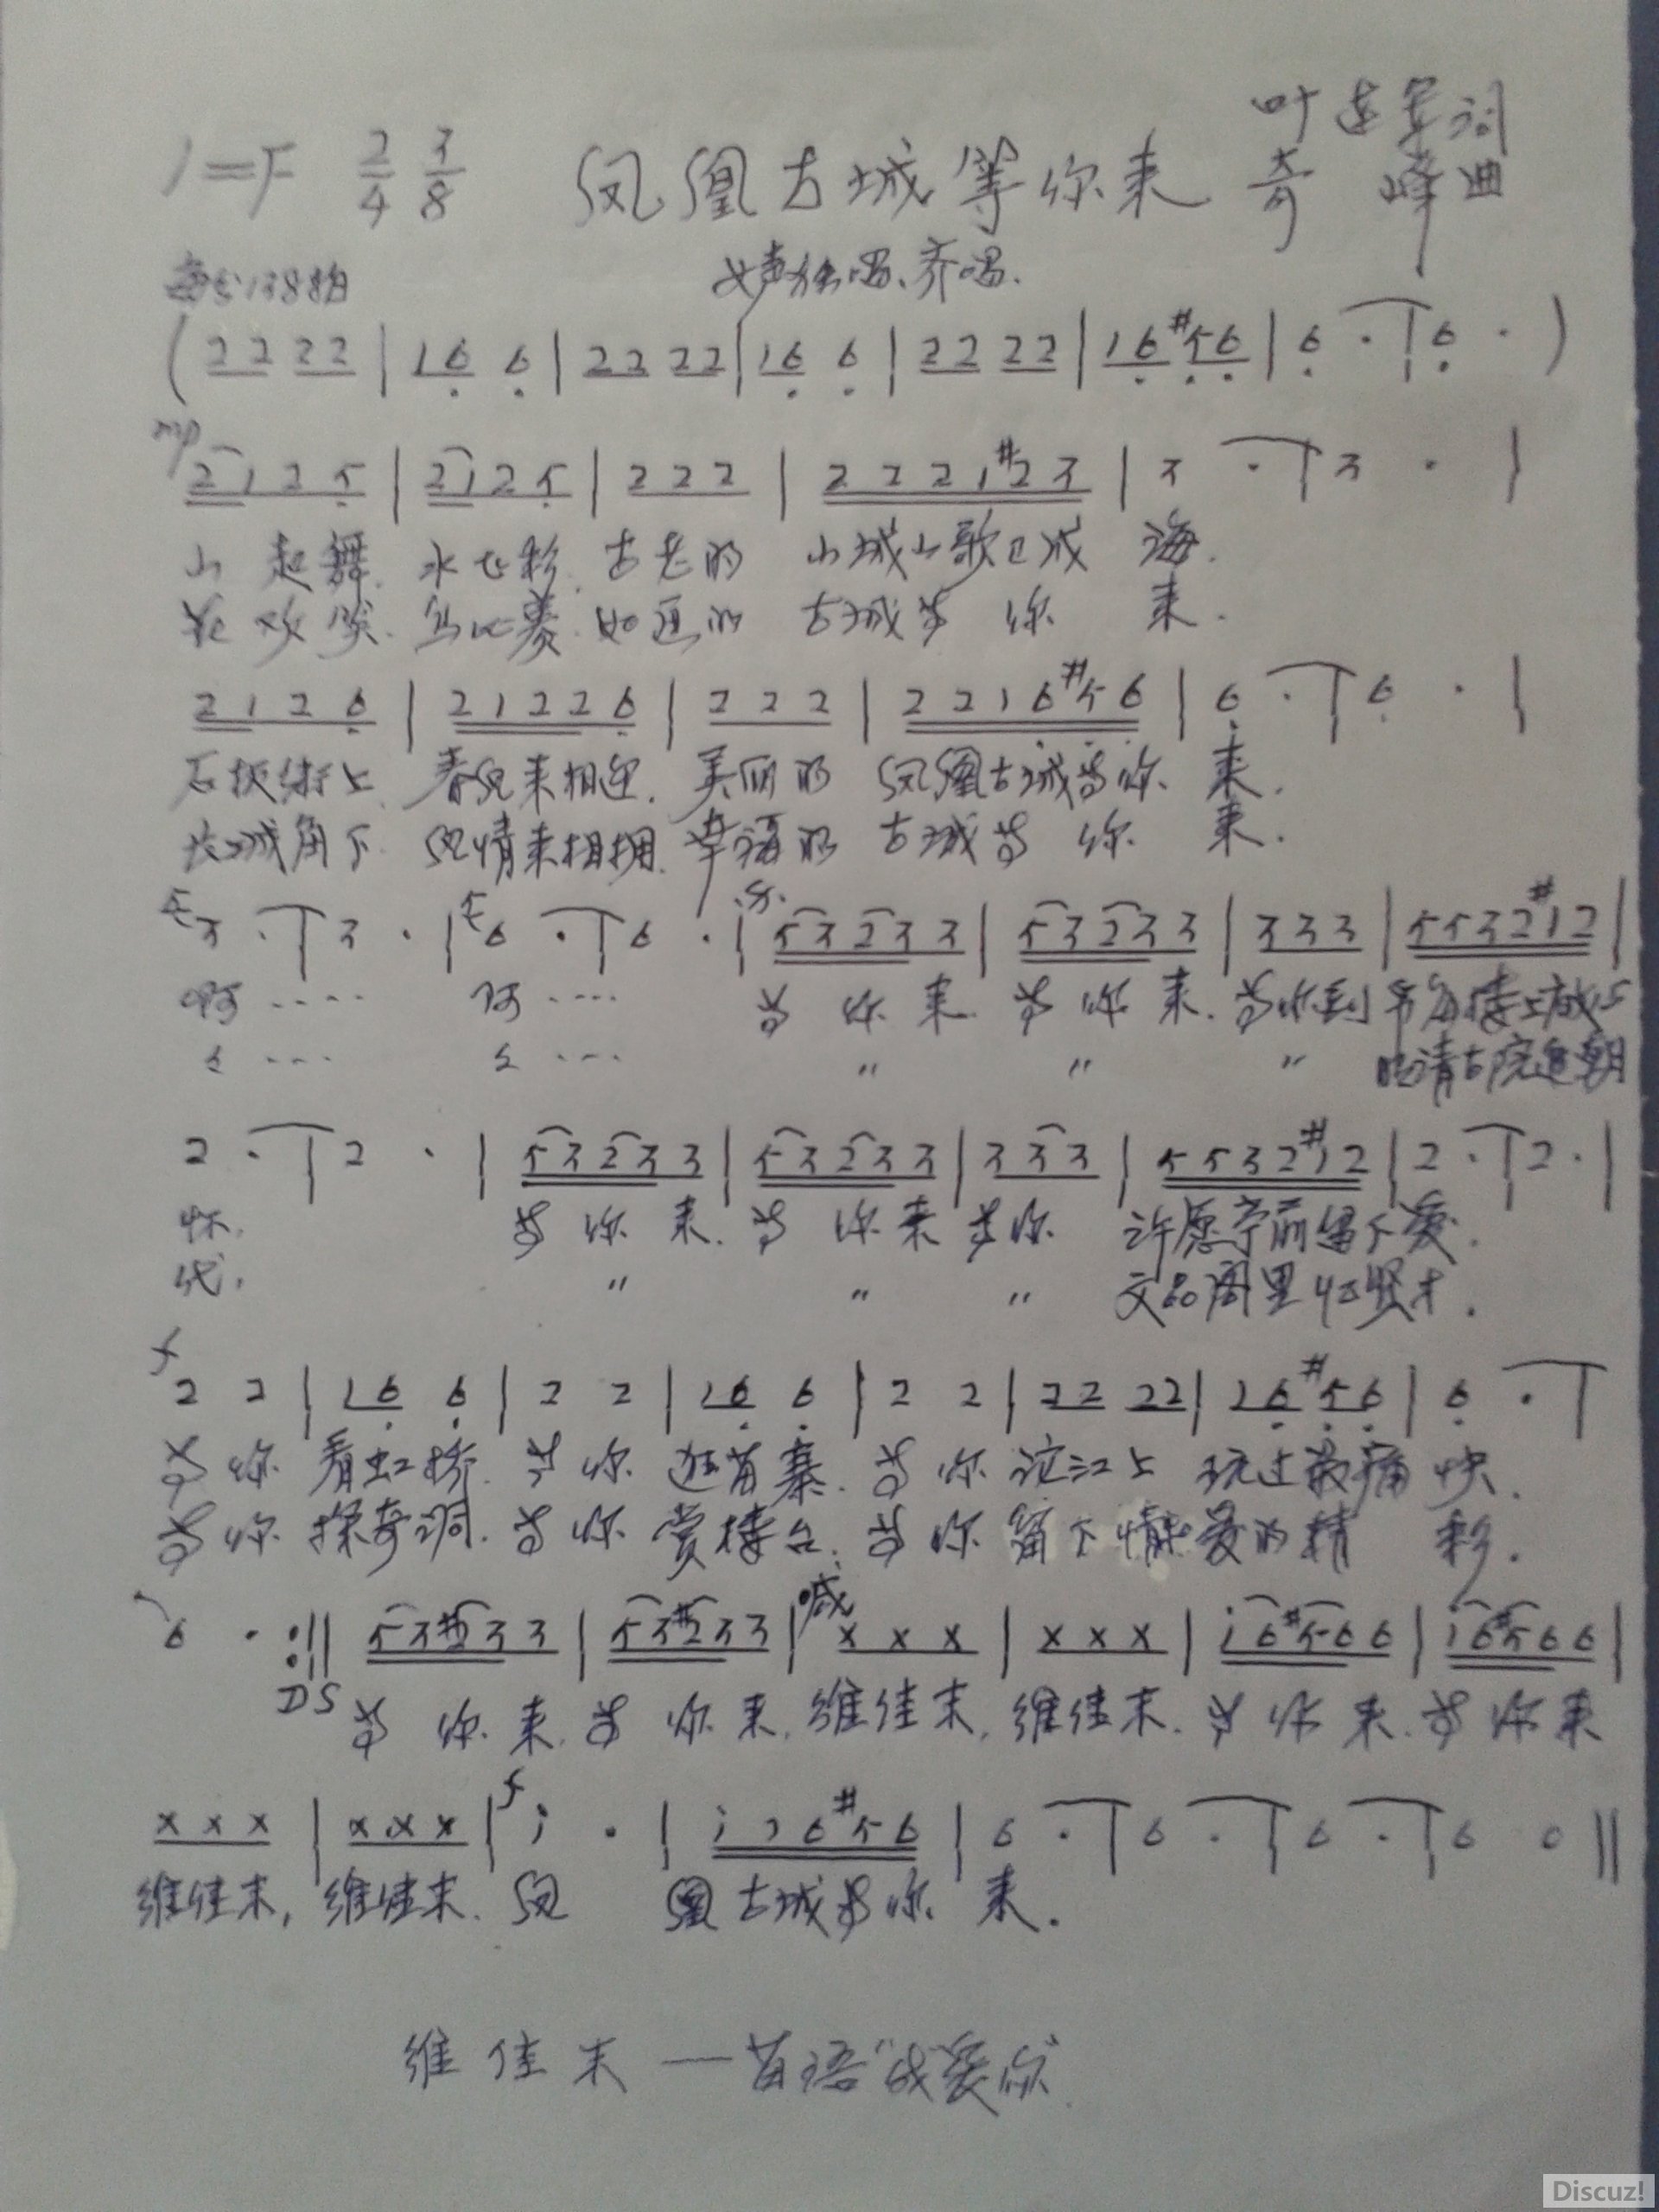 1=F 2/4 3/8 凤凰古城等你来
叶 军词
奇 峰曲
每分138拍 女声独唱、齐唱.
(2 2 2 2 | 1 6 6 | 2 2 2 2 | 1 6 6 | 2 2 2 2 | 1 6 #5 6 | 6 · | 6 · )
mp
2 1 2 5 | 2 1 2 5 | 2 2 2 | 2 2 2 1 #2 3 | 3 · | 3 · |
山 起舞. 水飞彩. 古老的 山城山歌已成 海.
花欢笑. 鸟比赛. 如画的 古城等 你 来.
2 1 2 6 | 2 1 2 2 6 | 2 2 2 | 2 2 1 6 #5 6 | 6 · | 6 · |
石板街上 春风来相迎. 美丽的 凤凰古城等你 来.
长城角下 风情来相拥. 幸福的 古城等 你 来.
3 · | 3 · | 6 · | 6 · | 5 3 2 3 3 | 5 3 2 3 3 | 3 3 3 | 5 5 3 2 #1 2 |
啊 ···· 啊 ···· 等 你 来 等 你 来. 等你到 吊角楼上
··· ··· 〃 〃 〃 请古院
2 · | 2 · | 5 3 2 3 3 | 5 3 2 3 3 | 3 3 3 | 5 5 3 2 #1 2 | 2 · | 2 · |
怀. 等 你 来. 等 你 来 等你 许愿亭前留下爱.
代. 〃 〃 〃 文品阁里 贤才.
f
2 2 | 1 6 6 | 2 2 | 1 6 6 | 2 2 | 2 2 2 2 | 1 6 #5 6 | 6 · |
等 你 看虹桥. 等 你 逛苗寨. 等 你 沱江上 玩过最痛 快.
等 你 探奇洞. 等 你 赏楼台. 等 你 留下情 爱的精 彩.
6 · :|| 5 3 #2 3 3 | 5 3 #2 3 3 | 喊 x x x | x x x | i 6 #5 6 6 | i 6 #5 6 6 |
DS
等 你 来. 等 你 来. 维佳末, 维佳末. 等 你 来. 等 你 来
x x x | x x x | f i · | i i 6 #5 6 | 6 · | 6 · | 6 · | 6 0 ||
维佳末, 维佳末. 凤 凰古城等你 来.
维 佳 末 — 苗语“我爱你”
Discuz!